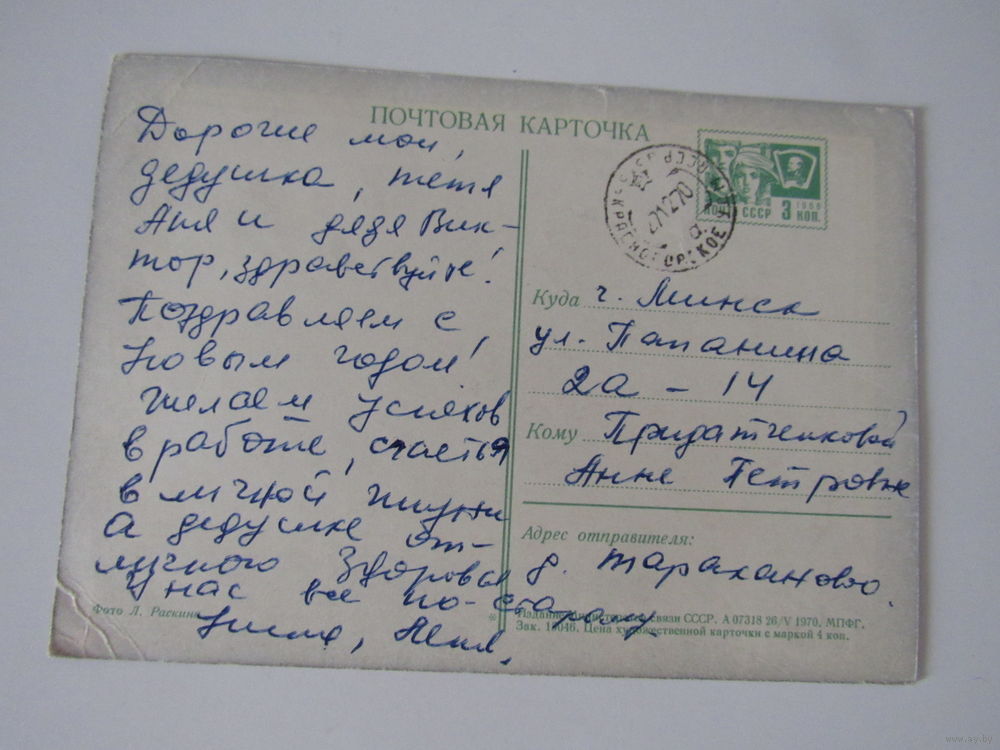 ПОЧТОВАЯ КАРТОЧКА
Дорогие мои,
дедушка, тётя
Аня и дядя Вик-
тор, здравствуйте!
Поздравляем с
Новым годом!
Желаем успехов
в работе, счастья
в личной жизни
А дедушке от-
личного здоровья
У нас все по-старому
Фото Л. Раскина
ПОЧТА СССР 3 КОП.
1968
КРАСНОГОРСКОЕ
271270
Куда г. Минск
ул. Папанина
2а – 14
Кому Придатченковой
Анне Петровне
Адрес отправителя:
д. Тараканово.
Издание Министерства связи СССР. А 07318 26/V 1970. МПФГ.
Зак. 10046. Цена художественной карточки с маркой 4 коп.
www.ay.by